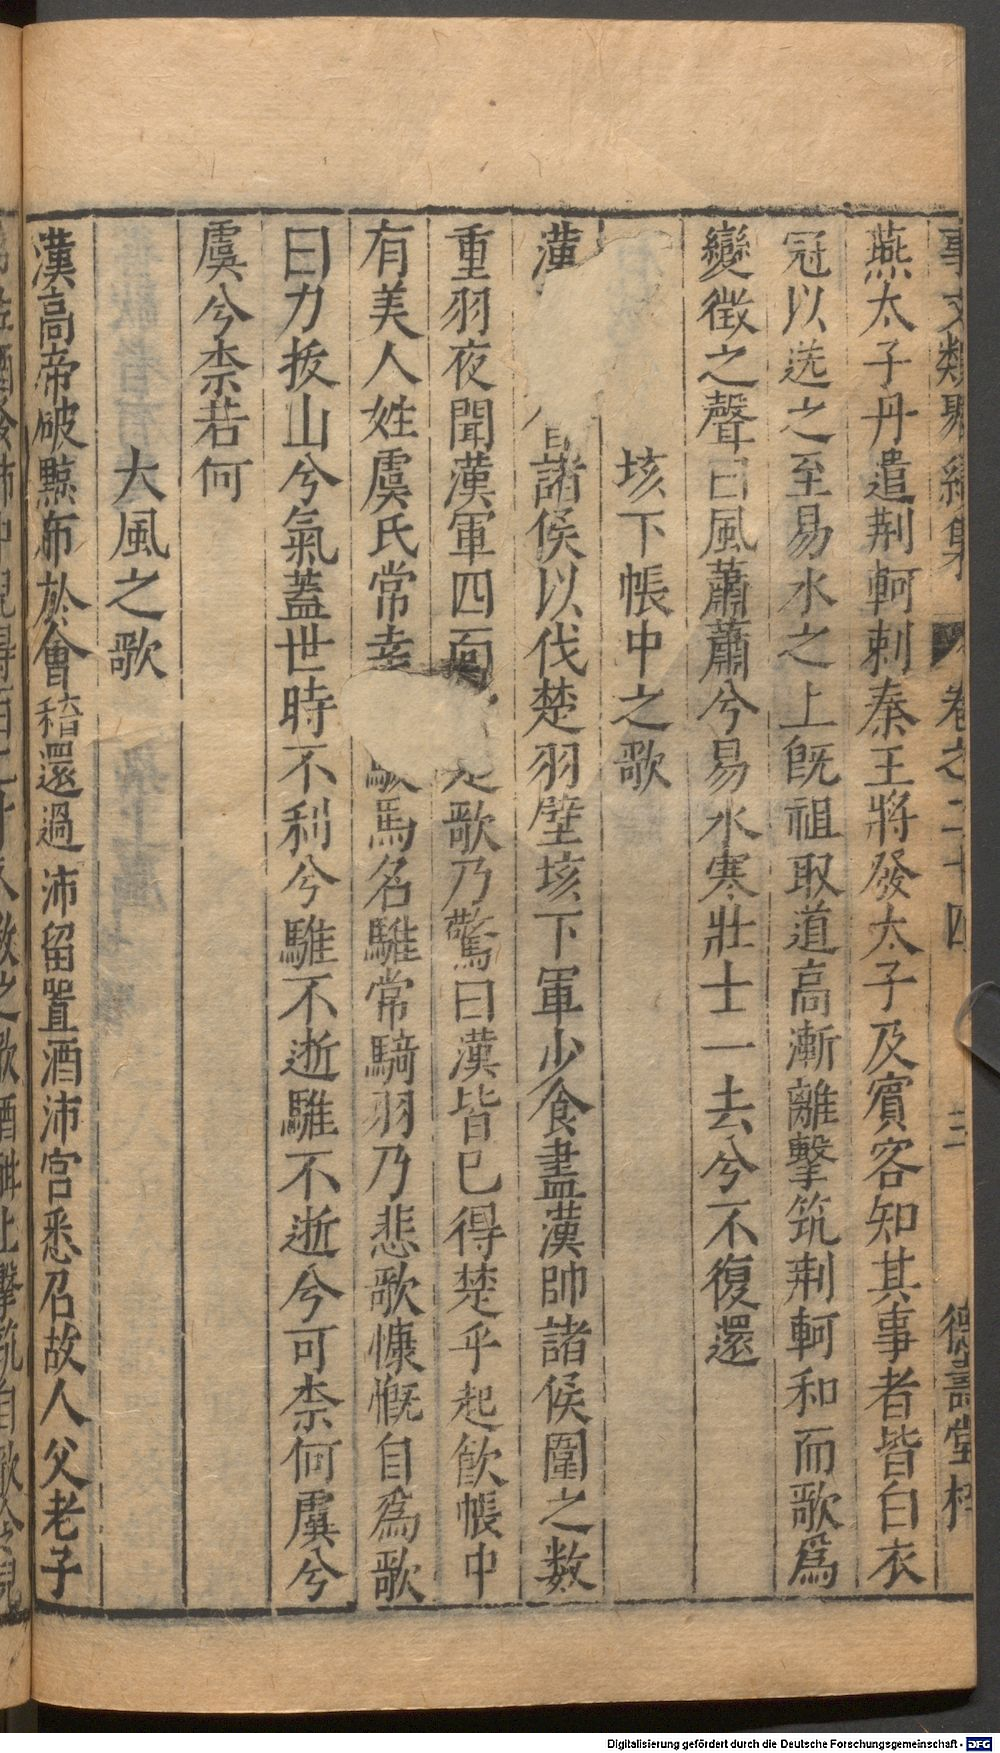 事文類聚續集 卷之二十四 三 德壽堂梓
燕太子丹遣荆軻刺秦王將發太子及賓客知其事者皆白衣
冠以送之至易水之上旣祖取道高漸離擊筑荆軻和而歌爲
變徵之聲曰風蕭蕭兮易水寒壯士一去兮不復還
垓下帳中之歌
漢 諸侯以伐楚羽壁垓下軍少食盡漢帥諸侯圍之數
重羽夜聞漢軍四面 楚歌乃驚曰漢皆已得楚乎起飲帳中
有美人姓虞氏常幸 駿馬名騅常騎羽乃悲歌慷慨自爲歌
曰力拔山兮氣蓋世時不利兮騅不逝騅不逝兮可柰何虞兮
虞兮柰若何
大風之歌
漢高帝破黥布於會稽還過沛留置酒沛宮悉召故人父老子
Digitalisierung gefördert durch die Deutsche Forschungsgemeinschaft - DFG